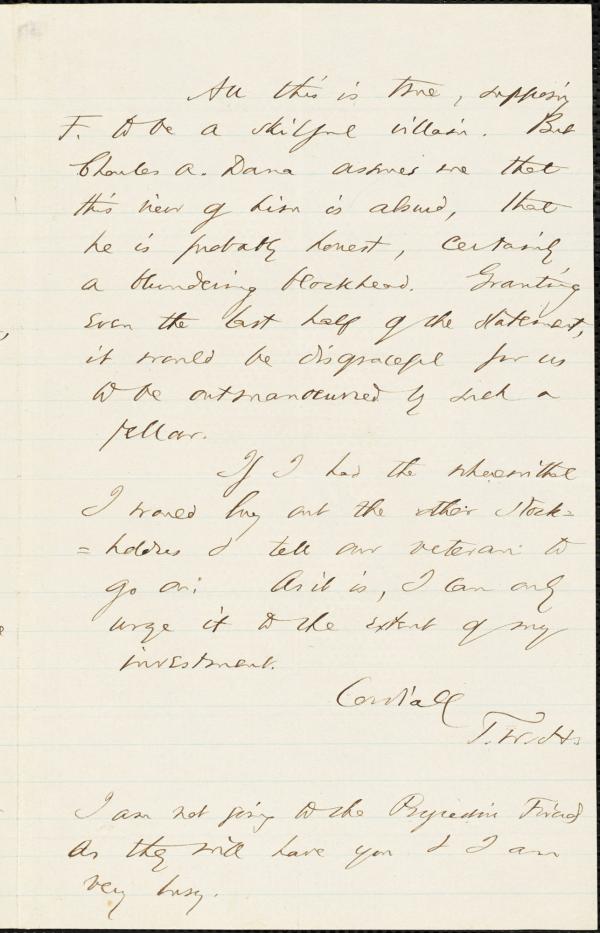 All this is true, supposing
F. to be a skilful villain. But
Charles A. Dana assures me that
this view of him is absurd, that
he is probably honest, certainly
a blundering blockhead. Granting
even the last half of the statement,
it would be disgraceful for us
to be outmanoeuvred by such a
fellow.
If I had the wherewithal
I would buy out the other stock=
=holders & tell our veteran to
go on: As it is, I can only
urge it to the extent of my
investment.
Cordially
T.
I am not going to the Progressive Friends
as they will have you & I am
very busy.